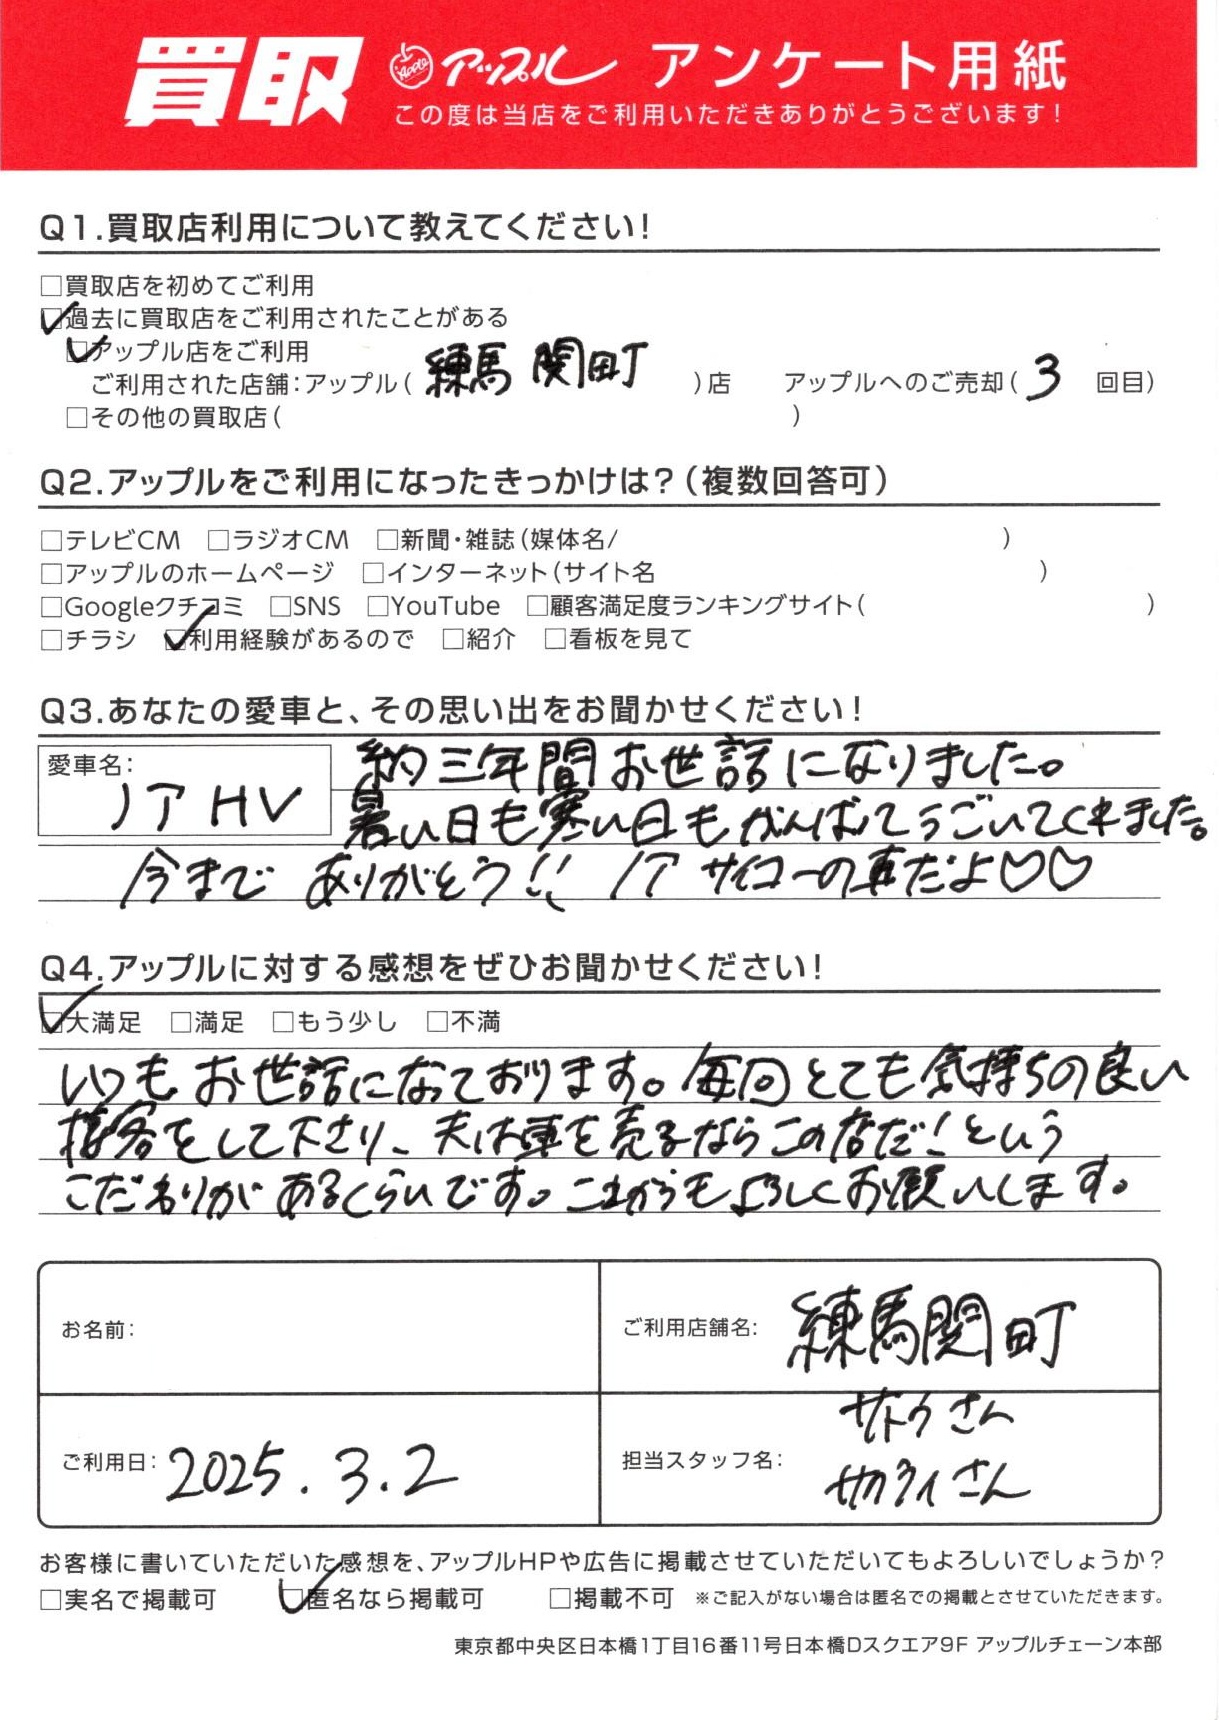 買取 Apple アップル アンケート用紙
この度は当店をご利用いただきありがとうございます!
Q1.買取店利用について教えてください!
□買取店を初めてご利用
☑過去に買取店をご利用されたことがある
☑アップル店をご利用
ご利用された店舗:アップル( 練馬 関町 )店 アップルへのご売却( 3 回目)
□その他の買取店( )
Q2.アップルをご利用になったきっかけは?(複数回答可)
□テレビCM □ラジオCM □新聞・雑誌(媒体名/ )
□アップルのホームページ □インターネット(サイト名 )
□Googleクチコミ □SNS □YouTube □顧客満足度ランキングサイト( )
□チラシ ☑利用経験があるので □紹介 □看板を見て
Q3.あなたの愛車と、その思い出をお聞かせください!
愛車名: ノア HV
約三年間お世話になりました。
暑い日も寒い日もがんばてうごいてくれました。
今まで ありがとう!! ノア サイコーの車だよ♡♡
Q4.アップルに対する感想をぜひお聞かせください!
☑大満足 □満足 □もう少し □不満
いつもお世話になっております。毎回とても気持ちの良い
接客をして下さり、夫は車を売るならこの店だ!という
こだわりがあるくらいです。これからもよろしくお願いします。
お名前:
ご利用店舗名: 練馬関町
ご利用日: 2025.3.2
担当スタッフ名: サトウさん
さん
お客様に書いていただいた感想を、アップルHPや広告に掲載させていただいてもよろしいでしょうか?
□実名で掲載可 ☑匿名なら掲載可 □掲載不可 ※ご記入がない場合は匿名での掲載とさせていただきます。
東京都中央区日本橋1丁目16番11号日本橋Dスクエア9F アップルチェーン本部